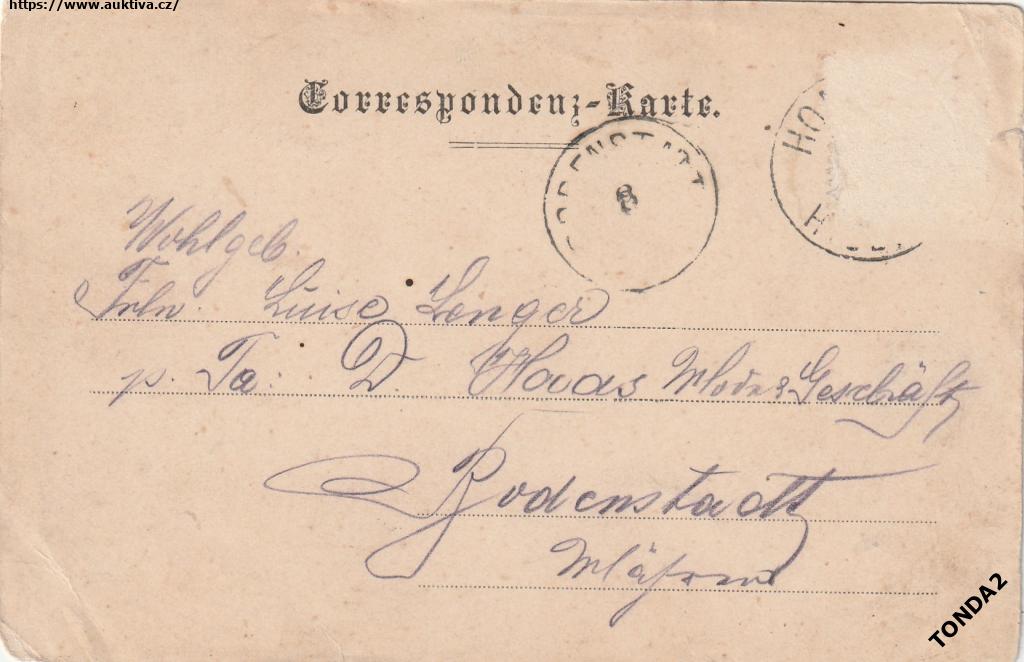 https://www.auktiva.cz/
Correspondenz-Karte.
8
Wohlgeb.
Frln. Luise Lenger
p. Fa: D. Haas Mode Geschäft
Bodenstadt
Mähren
TONDA2